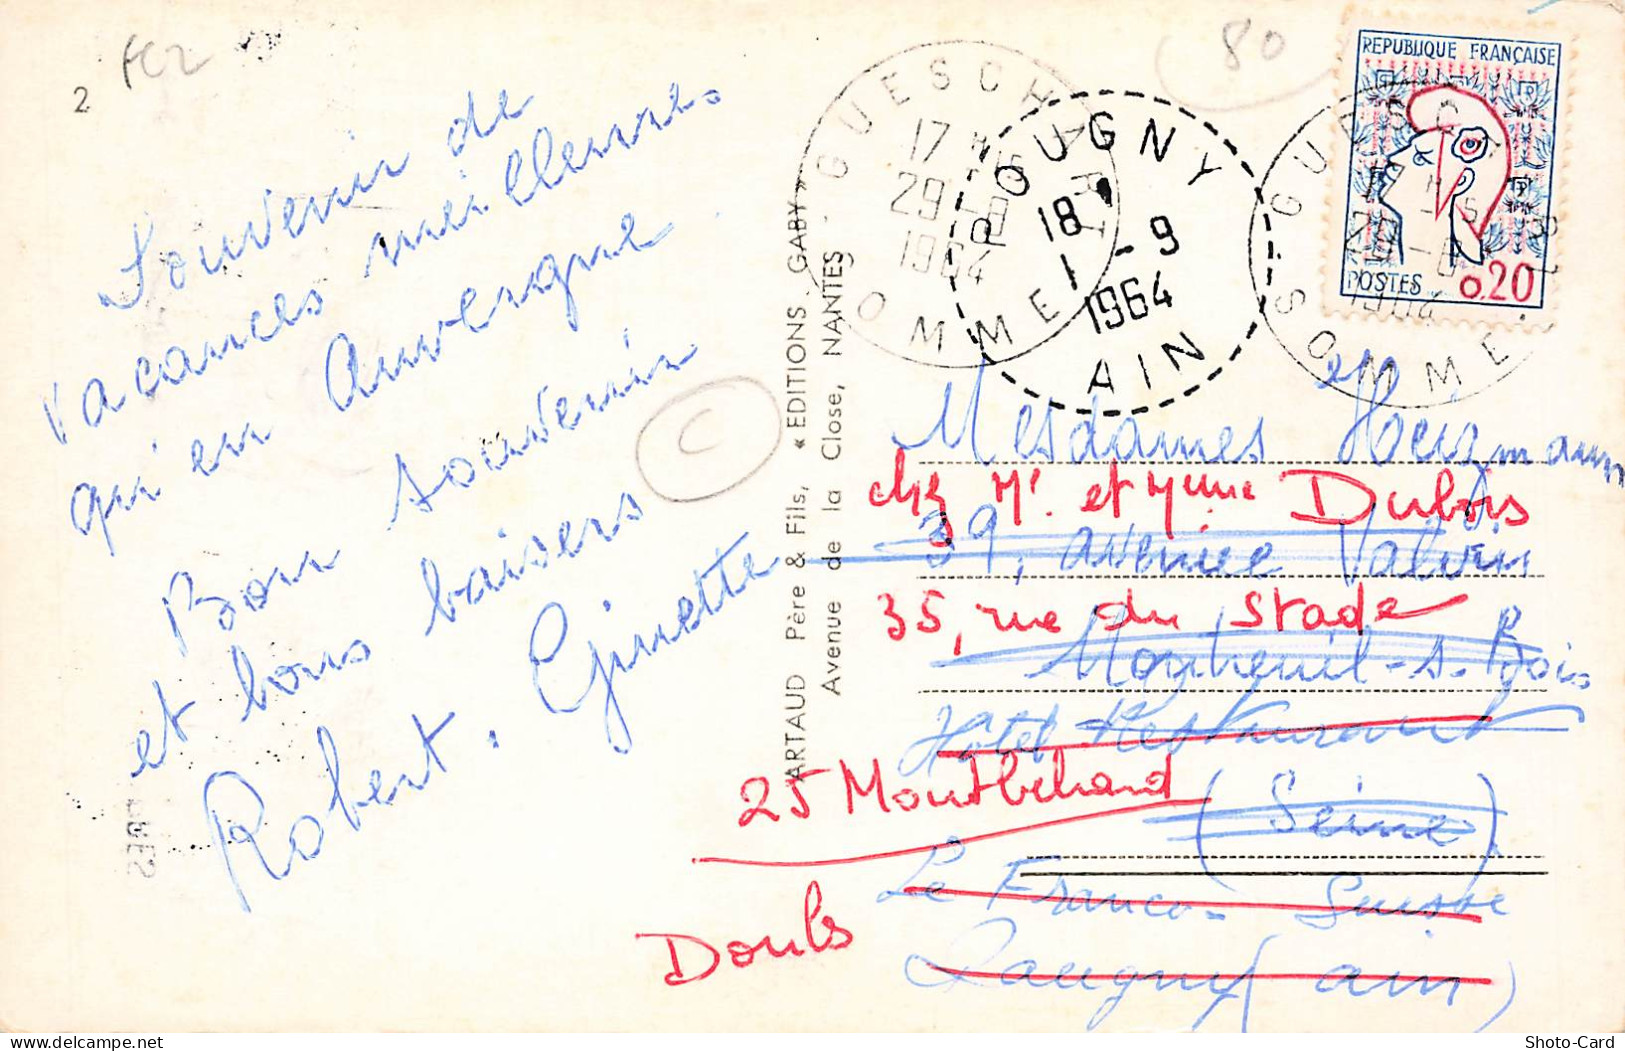 2
FC2
80
REPUBLIQUE FRANÇAISE
POSTES
0.20
GUESCHART
17 H
29-8
1964
SOMME
POUGNY
18 H
1-9
1964
AIN
GUESCHART
17 H
29-8
1964
SOMME
Souvenir de
vacances meilleures
qu'en Auvergne.
Bon souvenir
et bons baisers
Robert. Ginette
C
ARTAUD Père & Fils, « EDITIONS GABY »
Avenue de la Close, NANTES
Mesdames
chez Mr et Mme Dubois
39, avenue Valvin
35, rue du Stade
Montreuil-s. Bois
Hôtel Restaurant
25 Montbeliard
(Seine)
Le Franco-Suisse
Doubs
Pougny (ain)
Shoto-Card